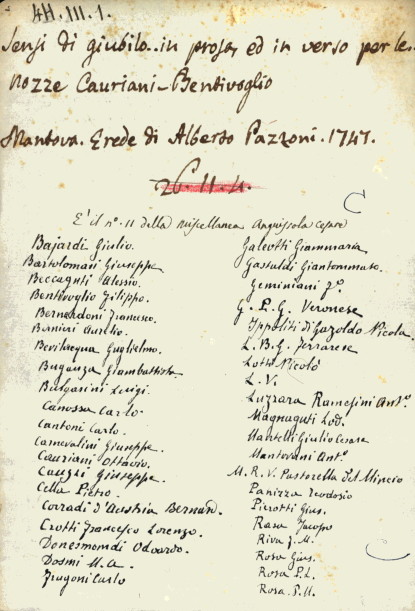 4H.III.1.
Sensi di giubilo in prosa, ed in verso per le
nozze Cauriani-Bentivoglio
Mantova. Erede di Alberto Pazzoni. 1747.
26.11.4.
C
E'il nº 11 della miscellanea Anguissola Cesare
Bajardi Giulio.
Bartolomasi Giuseppe
Beccaguti Alessio.
Bentivoglio Filippo.
Bernardoni Francesco.
Bernieri Aurelio.
Bevilacqua Guglielmo.
Buganza Giambattista.
Bulgarini Luigi.
Canossa Carlo.
Cantoni Carlo.
Carnevalini Giuseppe.
Cauriani Ottavio.
Cauzzi Giuseppe.
Cella Pietro.
Corradi d'Austria Bernard.
Crotti Francesco Lorenzo.
Donesmondi Odoardo.
Dosmi M.A.
Frugoni Carlo
Galeotti Giammaria
Gastaldi Giantommaso.
Geminiani Fº.
G. P. G. Veronese
Ippoliti di Gazoldo Nicola.
L. B. G. Ferrarese
Lotti Nicolò
L. V.
Luzzara Ramesini Antº.
Magnaguti Lod.
Mantelli Giulio Cesare
Mantovani Antº.
M. R. V. Pastorella del Mincio
Panizza Teodosio
Pierotti Gius.
Rasa Jacopo
Riva J. M.
Rosa Gius.
Rosa P. L.
Rosa P. M.